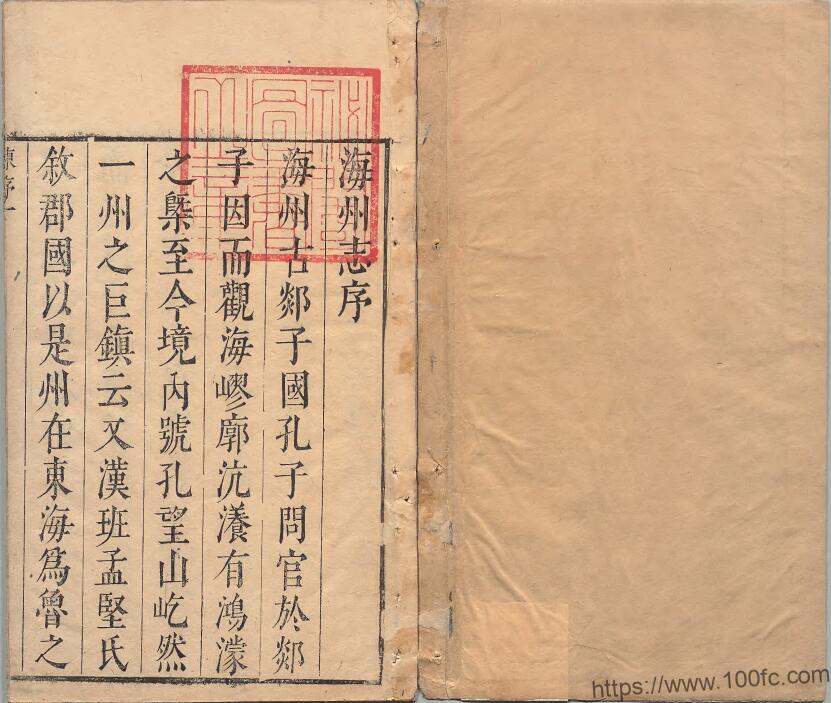 海州志序
海州古郯子國孔子問官於郯
子因而觀海嵺廓沆瀁有鴻濛
之槩至今境內號孔望山屹然
一州之巨鎮云又漢班孟堅氏
敘郡國以是州在東海為魯之
https://www.100fc.com